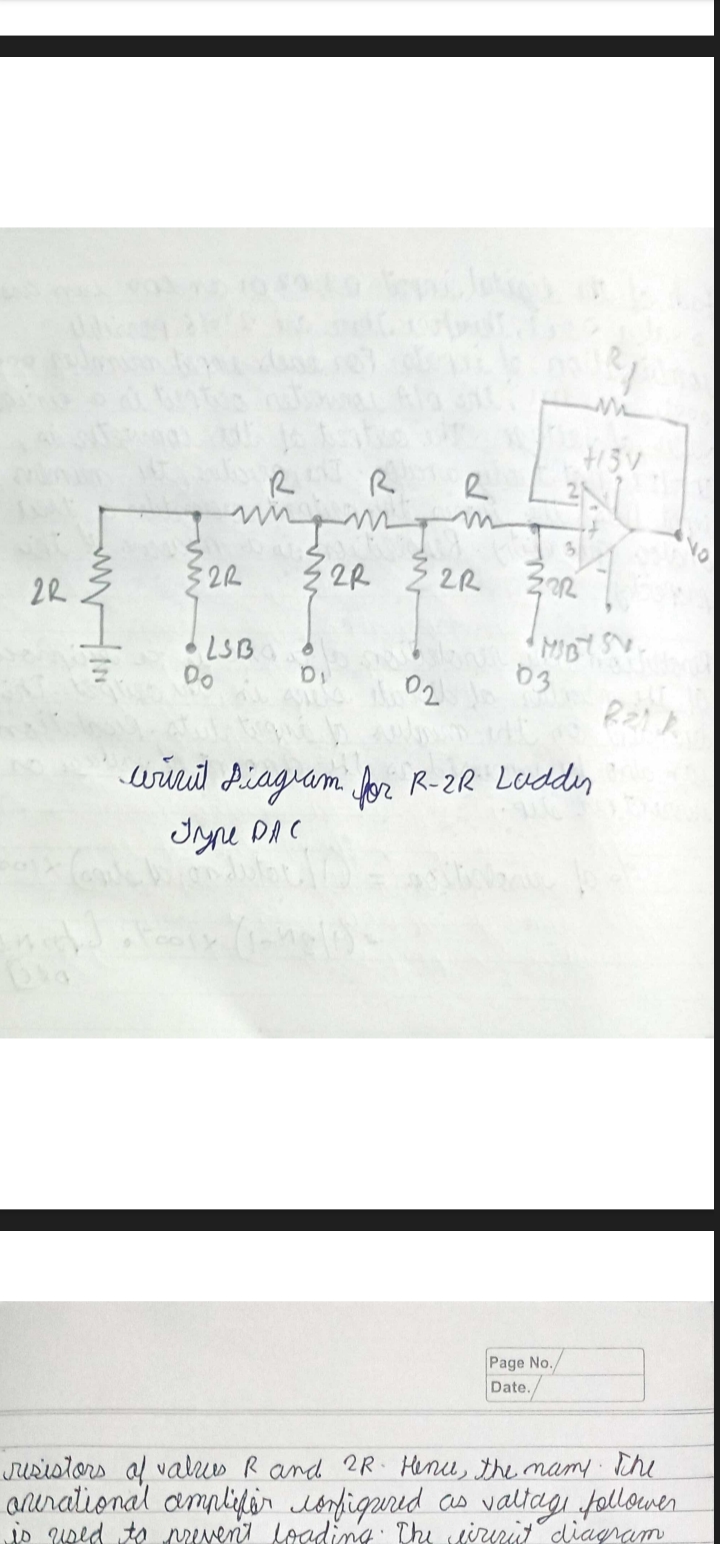 R
+15V
R
R
R
2
3
2R
2R
2R
2R
2R
Vo
LSB
MSB
D0
D1
D2
D3
circuit Diagram for R-2R Ladder
Type DAC
Page No.
Date.
resistors of values R and 2R. Hence, the name. The
operational amplifier configured as valtage follower
is used to prevent loading. The circuit diagram